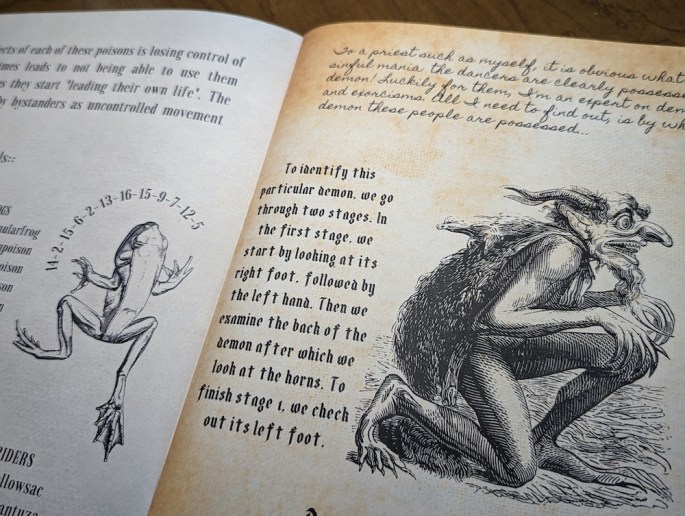 ects of each of these poisons is losing control of
imes leads to not being able to use them
es they start "leading their own life". The
by bystanders as uncontrolled movement
ls::
14-2-15-6-2-13-16-15-9-7-12-5
GS
ularfrog
poison
oison
son
n
RIDERS
llowsac
antuza
To a priest such as myself, it is obvious what
sinful mania the dancers are clearly possesse
demon! Luckily for them, I'm an expert on dem
and exorcisms. All I need to find out, is by wh
demon these people are possessed...
To identify this
particular demon, we go
through two stages. In
the first stage, we
start by looking at its
right foot, followed by
the left hand. Then we
examine the back of the
demon after which we
look at the horns. To
finish stage 1, we check
out its left foot.